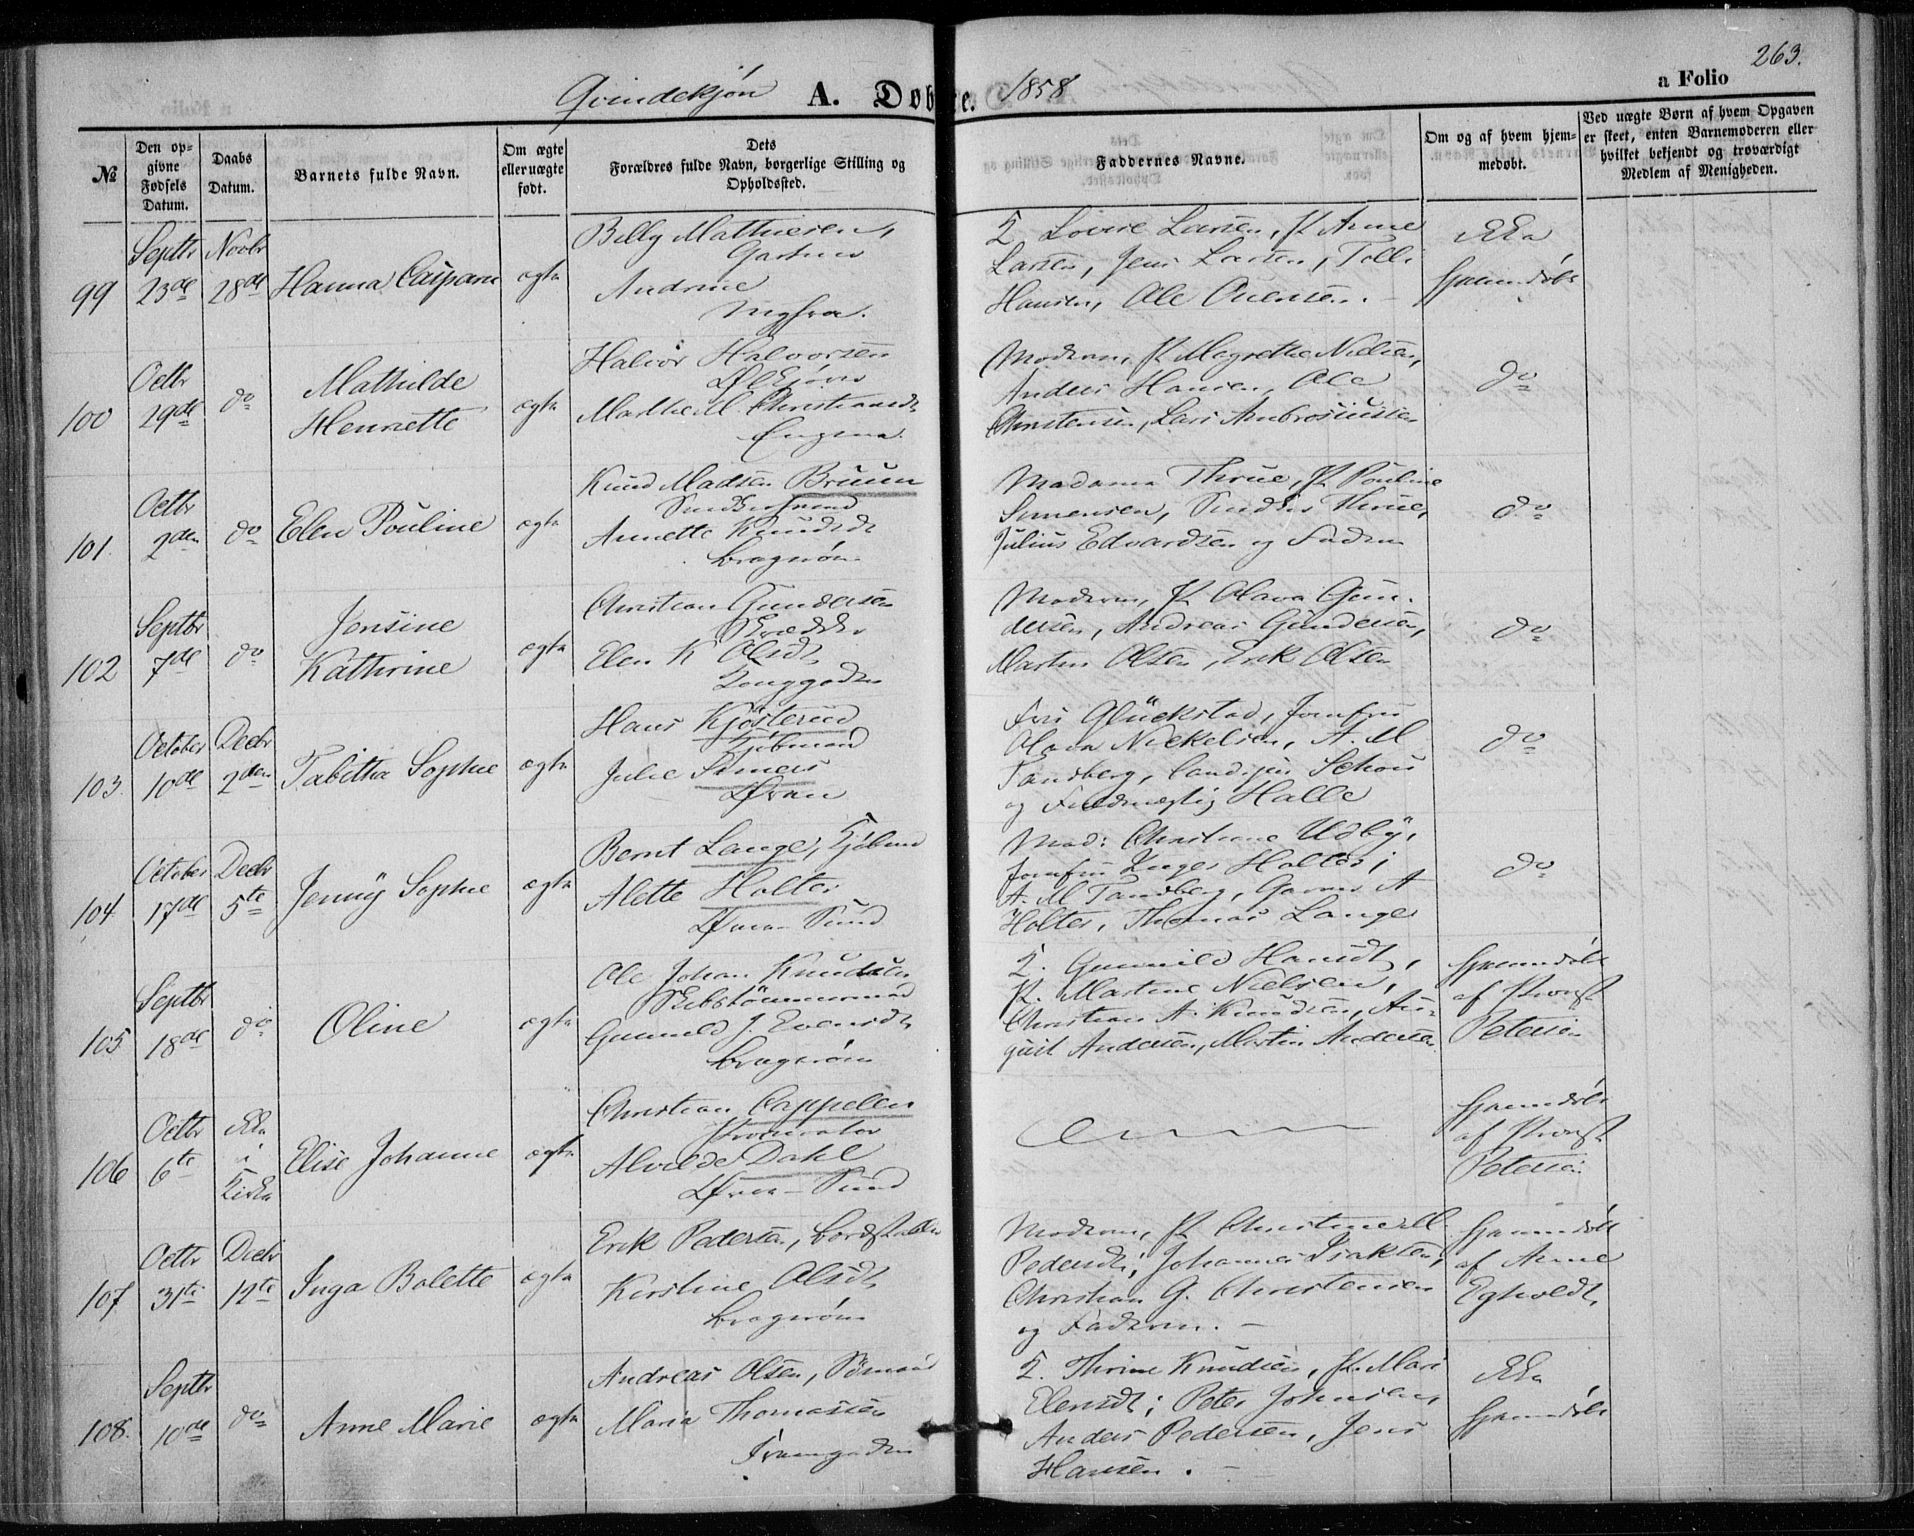 263.
Qvindekjøn A. Døbte. 1858 a Folio
№
Den opgivne Fødsels Datum.
Daabs Datum.
Barnets fulde Navn.
Om ægte eller uægte født.
Dets Forældres fulde Navn, borgerlige Stilling og Opholdssted.
Faddernes Navne.
Om og af hvem hjemmedøbt.
Ved uægte Børn af hvem Opgaven er skeet, enten Barnemoderen eller hvilket bekjendt og troværdigt Medlem af Menigheden.
99
Septbr 23de
Novbr 28de
Hanna
ægte
Billy Mathiesen,
Andrine
Larsen, Jens Larsen,
Hansen, Ole
ikke
hjemmedøbt
100
Octbr 19de
do
Mathilde
Henriette
ægte
Halvor Halvorsen
Marthe M. Christiansdt
Engene
Moderen, P. Magrethe Nielsen,
Anders Hansen, Ole
Christensen, Lars Ambrosiussen
do
101.
Octbr 2den
do
Elen Pouline
ægte
Knud Madsen Bruun
Annette Knudsdt
Bragernes
Madame Thrue, P. Pouline
Simensen, Snedker Thrue,
Julius Edvardsen og Faderen
do
102
Septbr 7de
do
Jensine
Kathrine
ægte
Christian Gundersen
Skrædder
Elen K Olsdt
Tonggaden
Moderen, P. Olava Gun-
dersen, Andreas Gundersen,
Martin Olsen, Erik Olsen
do
103
October 10de
Decbr 2den
Tabitha Sophie
ægte
Hans Kjøsterud
Kjøbmand
Julie Simers
Øvren
Fru Glückstad, Jomfru
Olava Nickelsen, A. M
Tandberg, Schou
og Fuldmægtig Halle
do
104
October 17de
Decbr 5te
Jenny Sophie
ægte
Bernt Lange, Kjøbmd
Alette Holter
Øvre-Sund
Mad: Christiane Udby,
Jomfru Inger Holter;
A. M Tandberg, A
Holter, Thomas Lange
do
105
Septbr 18de
do
Oline
ægte
Ole Johan Knudsen
Skibstømmermand
Gunnild J. Evensdt
Bragernes
Gunnild Hansdt,
P. Martine Nielsen,
Christian A. Knudsen, Au-
gust Andersen, Martin Andersen
hjemmedøbt
af Provst
Petersen
106
Octbr 6te
ikke
i
Kirke
Elise Johanne
ægte
Christian Cappelen
Procurator
Alvilde Dahl
Øvre-Sund
hjemmedøbt
af Provst
Petersen
107
Octbr 31te
Decbr 12te
Inga Bolette
ægte
Erik Pedersen,
Kirstine Olsdt
Bragernes
Moderen, P. Christine M.
Pedersdt; Johannes Isaksen,
Christian G. Christensen
og Faderen. —
hjemmedøbt
af Anne
Egholdt
108.
Septbr 10de
do
Anne Marie
ægte
Andreas Olsen, Sømand
Maria Thomassen
Tromgaden
Thrine Knudsen, P. Mari
Elensdt; Peter Johnsen,
Anders Pedersen, Jens
Hansen. —
ikke
hjemmedøbt